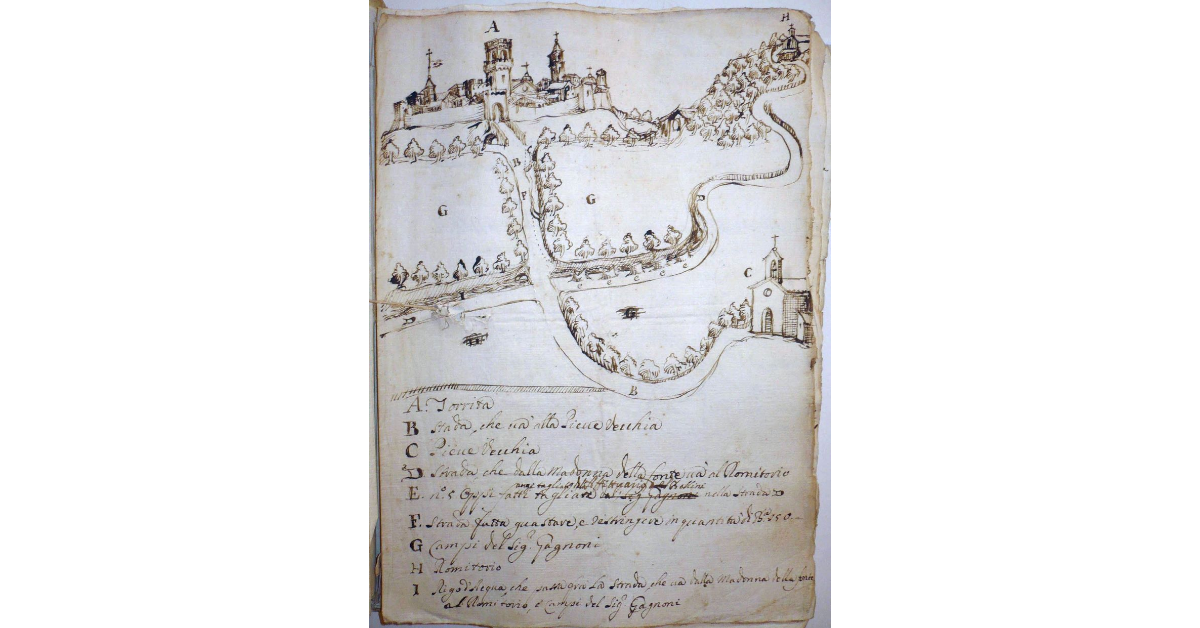 A
H
B
F
G
G
D
C
I
D
G
B
A. Torrita
B Strada, che va alla Pieve Vecchia
C Pieve Vecchia
D Strada che dalla Madonna della fonte va al Romitorio
E. n.° 5 Oppi fatti tagliare nella strada D
F. Strada fatta guastare, e destringere in quantità di
G Campi del Sig.r Gagnoni
H Romitorio
I Rigo d'Acqua, che passa fra la strada, che va dalla Madonna della fonte
al Romitorio, e Campi del Sig.r Gagnoni